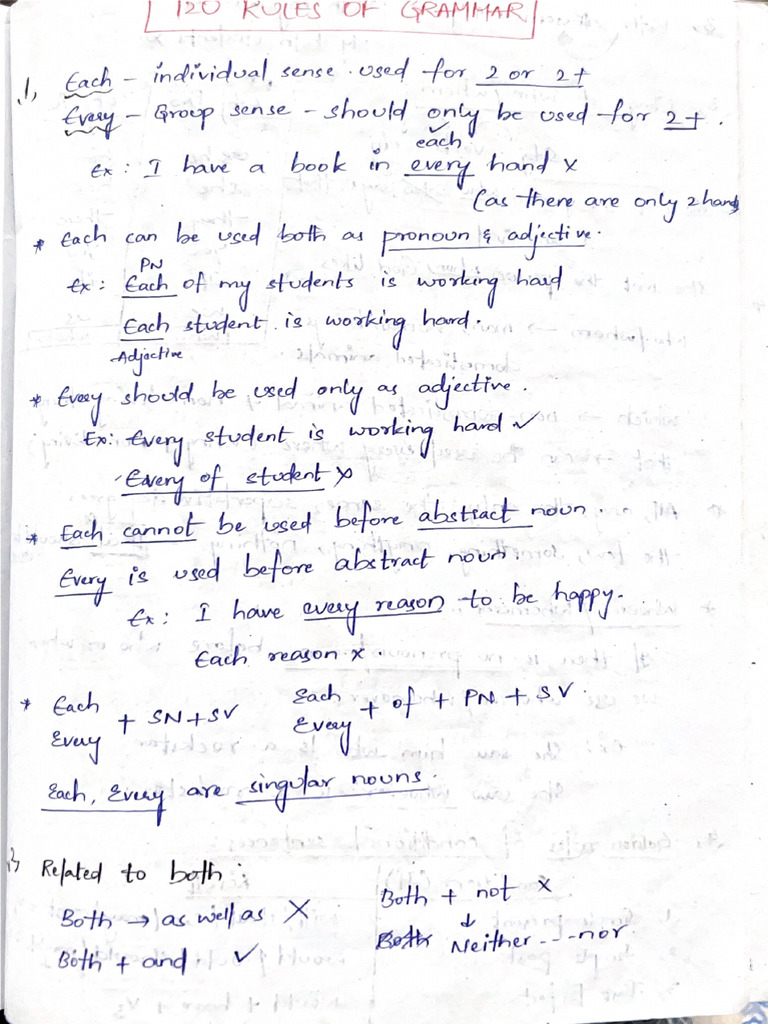 120 RULES OF GRAMMAR
1, Each - individual sense. used for 2 or 2+
Every - Group sense - should only be used for 2+.
each
Ex: I have a book in every hand x
(as there are only 2 hands
* Each can be used both as pronoun & adjective.
PN
Ex: Each of my students is working hard
Each student is working hard.
Adjective
* Every should be used only as adjective.
Ex: Every student is working hard ✓
Every of student x
* Each cannot be used before abstract noun.
Every is used before abstract noun.
Ex: I have every reason to be happy.
Each reason x.
* Each Every + SN + SV   Each Every + of + PN + SV.
Each, Every are singular nouns.
Related to both:
Both → as well as X   Both + not x
Both + and ✓   Both ↓ Neither---nor.